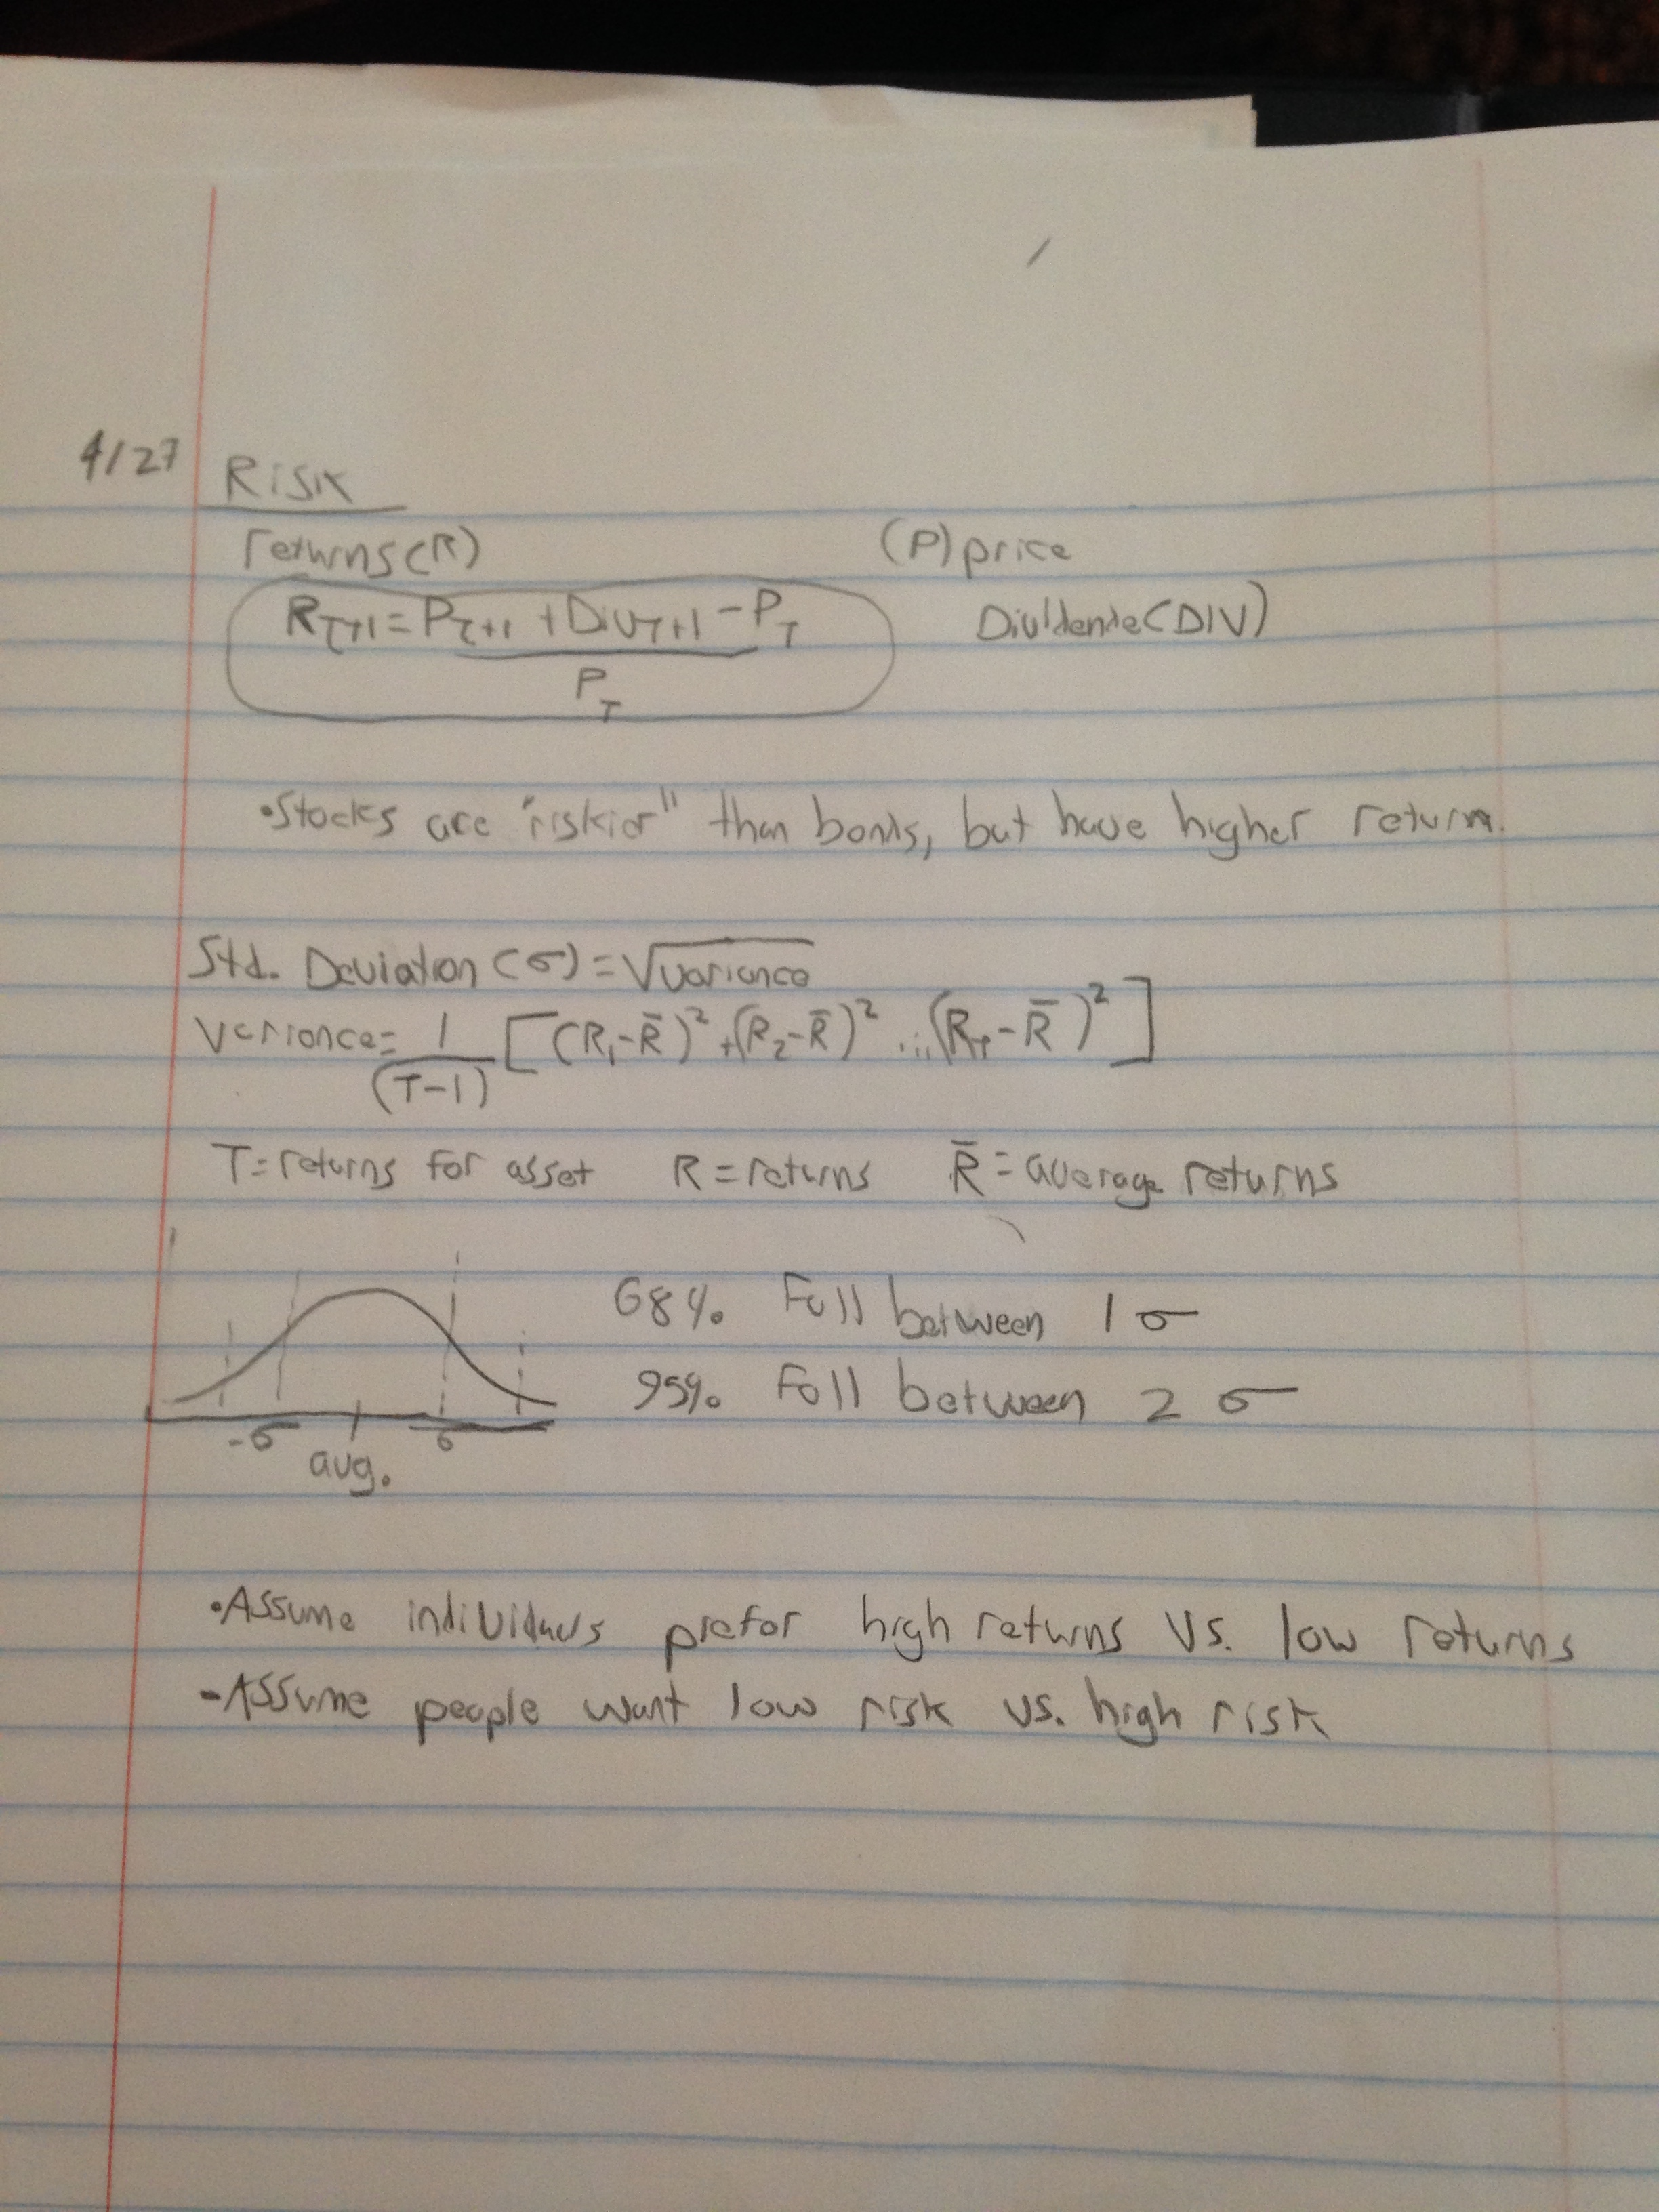 4/27 Risk
returns (R) (P) price
R_T+1 = P_T+1 + Div_T+1 - P_T Dividende (DIV)
P_T
•Stocks are "riskier" than bonds, but have higher return.
Std. Deviation (σ) = √variance
Variance = 1 [(R₁-R̄)² + (R₂-R̄)² ... (R_T - R̄)²]
(T-1)
T = returns for asset R = returns R̄ = average returns
68% Fall between 1 σ
95% Fall between 2 σ
-σ σ
avg.
•Assume individuals prefer high returns vs. low returns
-Assume people want low risk vs. high risk